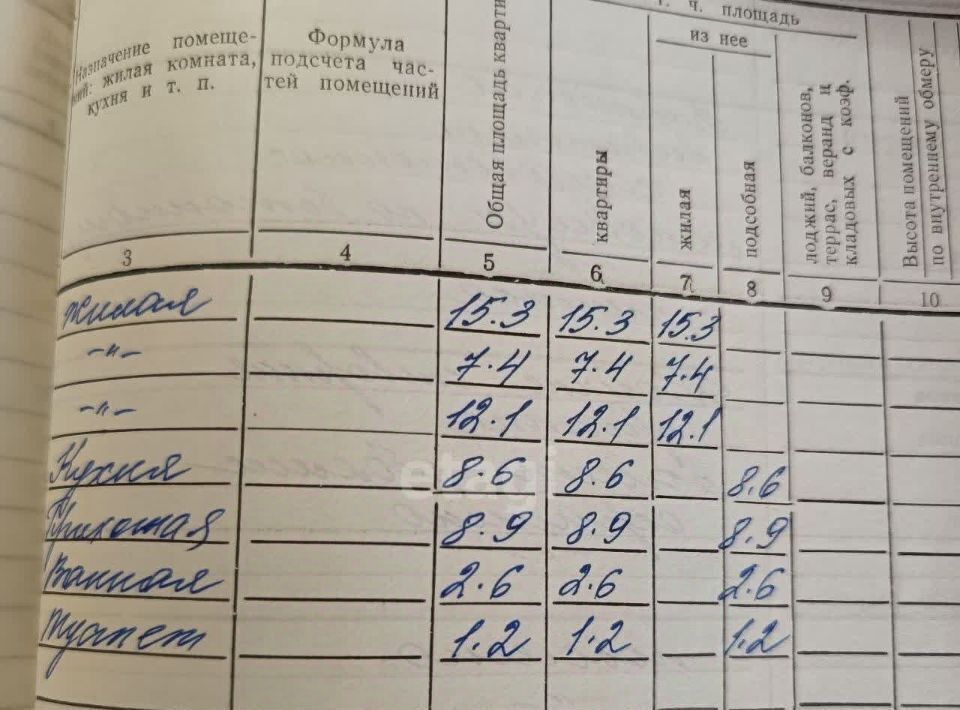 т. ч. площадь
из нее
Назначение помеще-
ний: жилая комната,
кухня и т. п.
Формула
подсчета час-
тей помещений
Общая площадь кварти
квартиры
жилая
подсобная
лоджий, балконов,
террас, веранд и
кладовых с коэф.
Высота помещений
по внутреннему обмеру
3 4 5 6 7 8 9 10
жилая 15.3 15.3 15.3
-"- 7.4 7.4 7.4
-"- 12.1 12.1 12.1
Кухня 8.6 8.6 8.6
Прихожая 8.9 8.9 8.9
Ванная 2.6 2.6 2.6
туалет 1.2 1.2 1.2